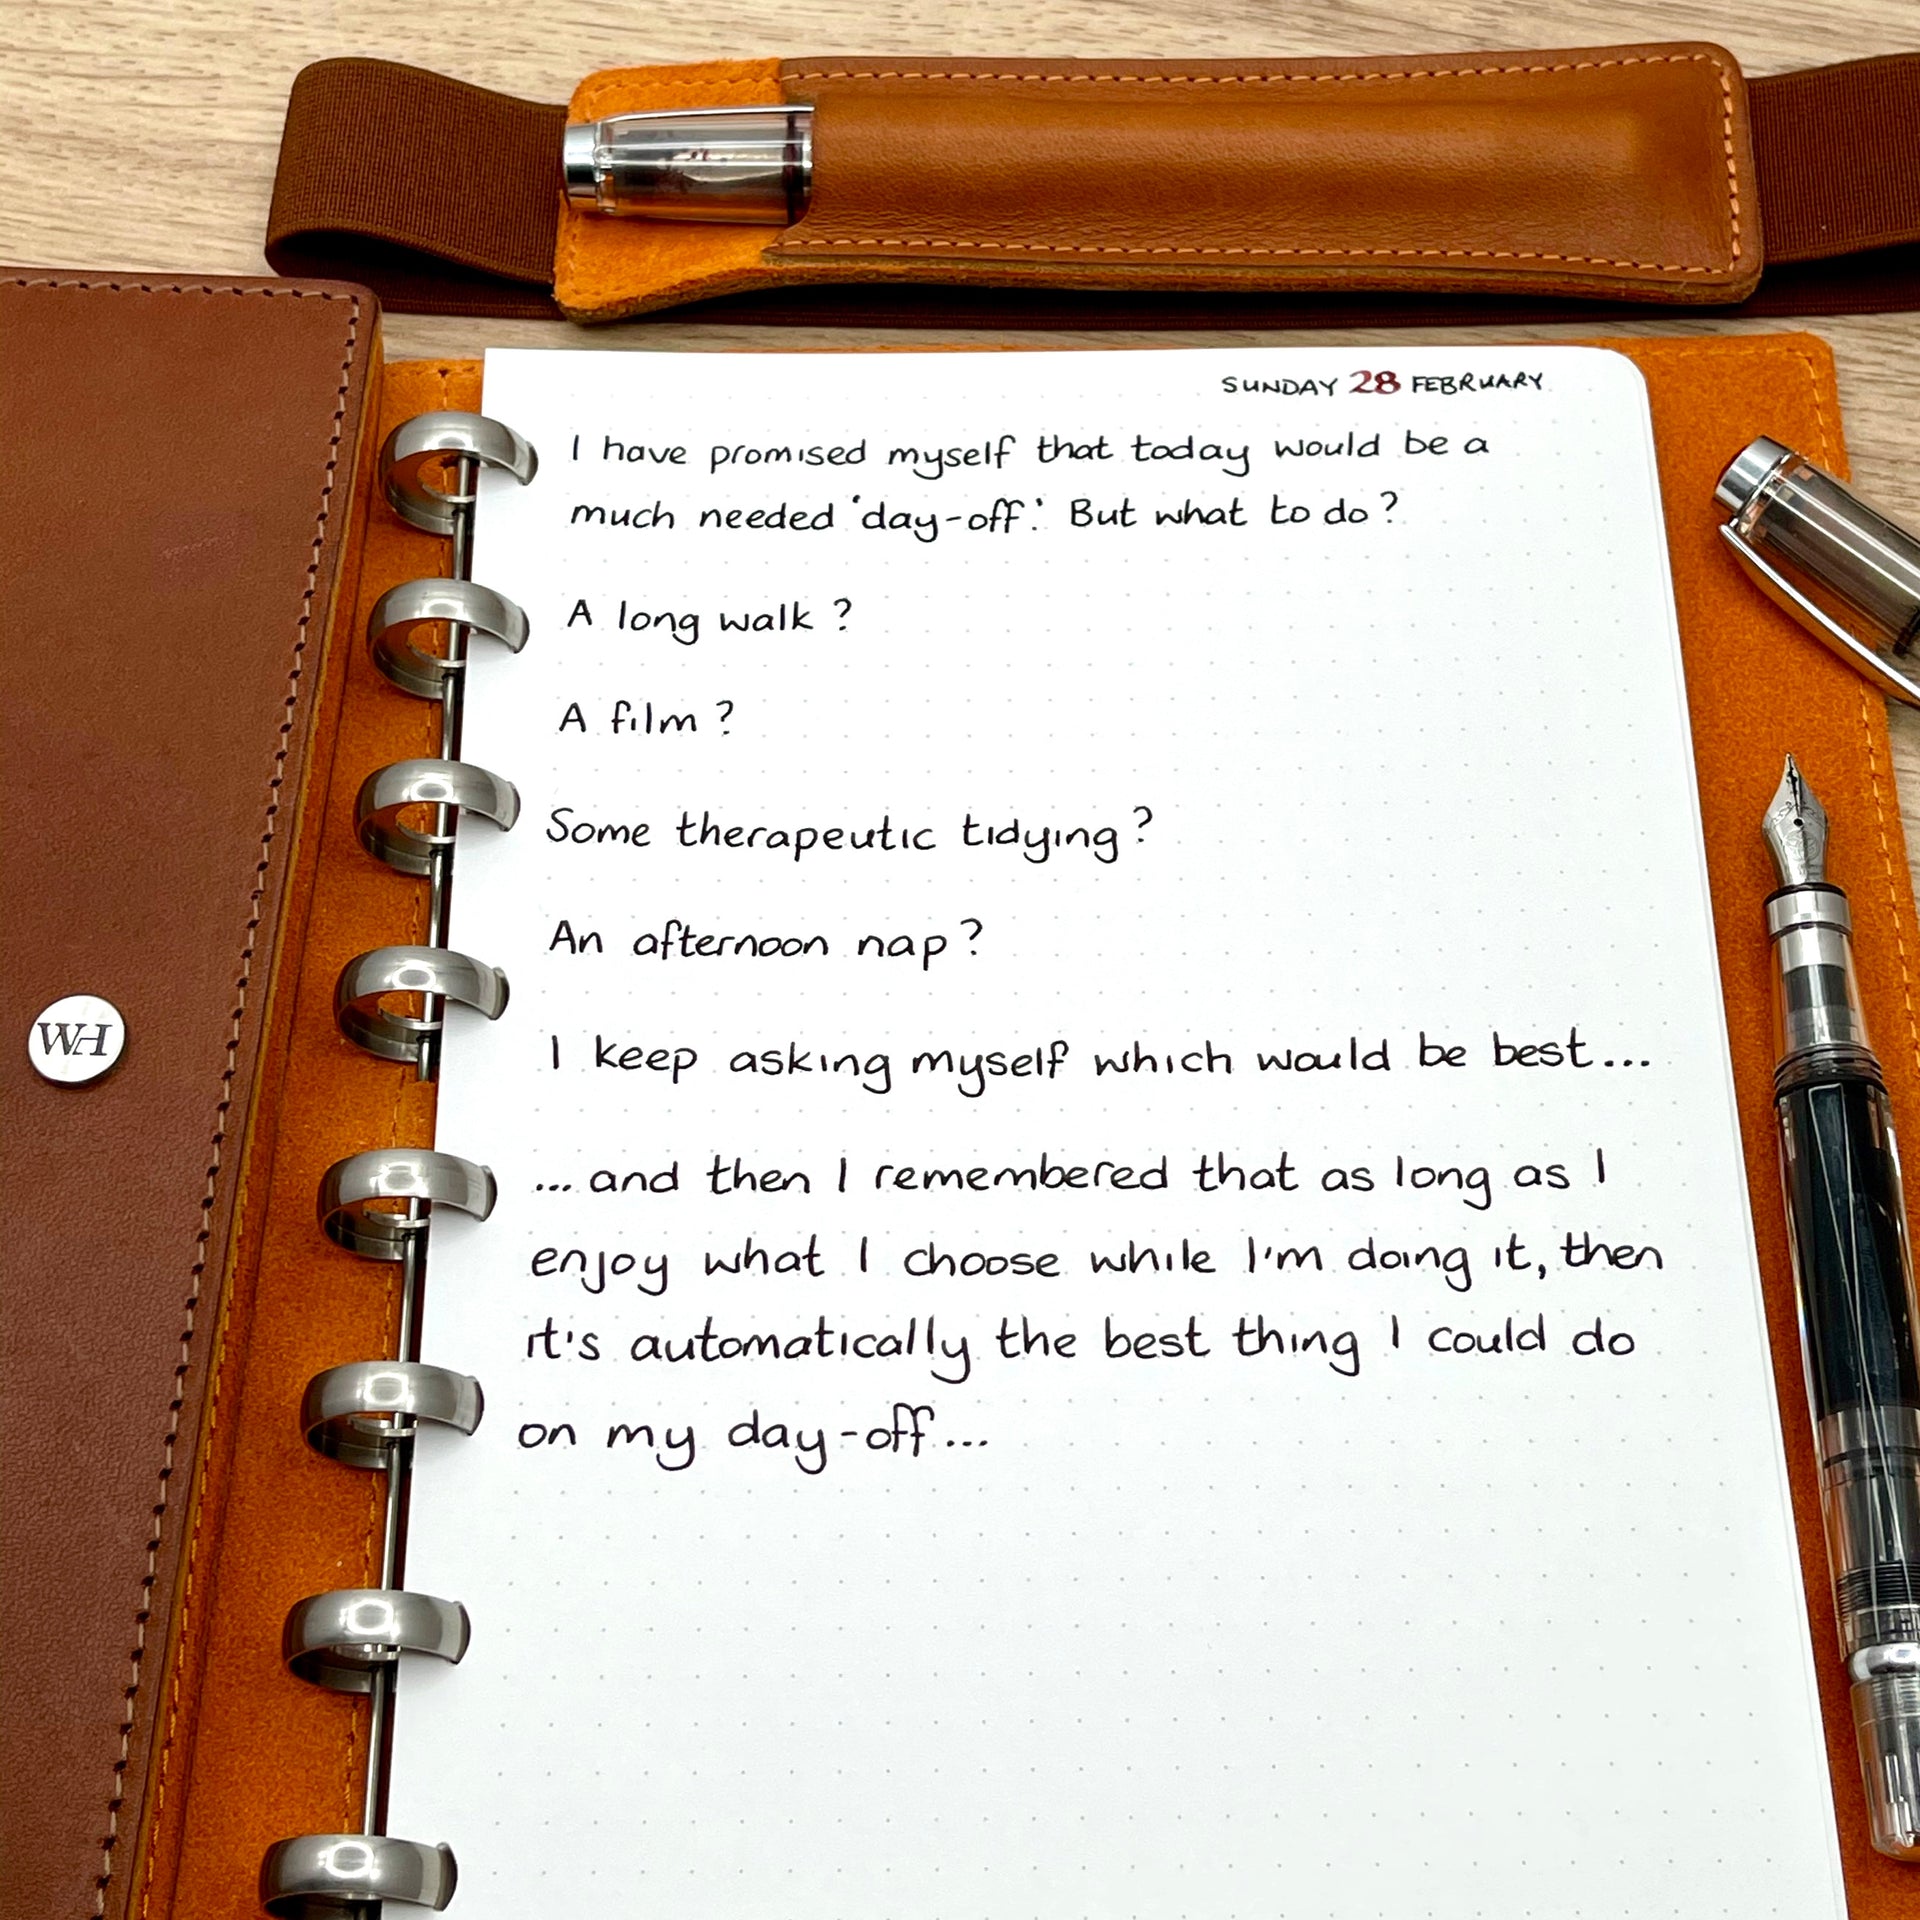 SUNDAY 28 FEBRUARY
I have promised myself that today would be a
much needed 'day-off.' But what to do?
A long walk?
A film?
Some therapeutic tidying?
An afternoon nap?
I keep asking myself which would be best...
...and then I remembered that as long as I
enjoy what I choose while I'm doing it, then
it's automatically the best thing I could do
on my day-off...
WH